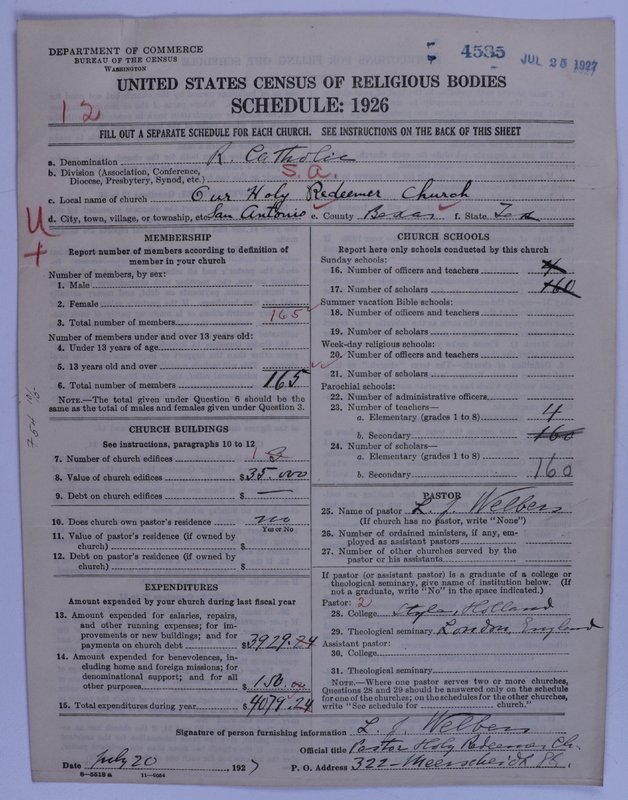 DEPARTMENT OF COMMERCE
BUREAU OF THE CENSUS
WASHINGTON
4535
JUL 25 1927
UNITED STATES CENSUS OF RELIGIOUS BODIES
SCHEDULE: 1926
12
FILL OUT A SEPARATE SCHEDULE FOR EACH CHURCH. SEE INSTRUCTIONS ON THE BACK OF THIS SHEET
a. Denomination R. Catholic
b. Division (Association, Conference, Diocese, Presbytery, Synod, etc.) S.A.
c. Local name of church Our Holy Redeemer Church
U
d. City, town, village, or township, etc. San Antonio e. County Bexar f. State Tex
+
MEMBERSHIP
Report number of members according to definition of member in your church
Number of members, by sex:
1. Male
2. Female
3. Total number of members 165
Number of members under and over 13 years old:
4. Under 13 years of age
5. 13 years old and over
6. Total number of members 165
NOTE.—The total given under Question 6 should be the same as the total of males and females given under Question 3.
CHURCH BUILDINGS
See instructions, paragraphs 10 to 12
7. Number of church edifices 1
8. Value of church edifices $35.000
9. Debt on church edifices $ —
10. Does church own pastor's residence no
Yes or No
11. Value of pastor's residence (if owned by church) $
12. Debt on pastor's residence (if owned by church) $
EXPENDITURES
Amount expended by your church during last fiscal year
13. Amount expended for salaries, repairs, and other running expenses; for improvements or new buildings; and for payments on church debt $3929.24
14. Amount expended for benevolences, including home and foreign missions; for denominational support; and for all other purposes $150.00
15. Total expenditures during year $4079.24
CHURCH SCHOOLS
Report here only schools conducted by this church
Sunday schools:
16. Number of officers and teachers 4
17. Number of scholars 160
Summer vacation Bible schools:
18. Number of officers and teachers
19. Number of scholars
Week-day religious schools:
20. Number of officers and teachers
21. Number of scholars
Parochial schools:
22. Number of administrative officers
23. Number of teachers—
a. Elementary (grades 1 to 8) 4
b. Secondary 160
24. Number of scholars—
a. Elementary (grades 1 to 8) 160
b. Secondary
PASTOR
25. Name of pastor L. J. Welbers
(If church has no pastor, write "None")
26. Number of ordained ministers, if any, employed as assistant pastors
27. Number of other churches served by the pastor or his assistants
If pastor (or assistant pastor) is a graduate of a college or theological seminary, give name of institution below. (If not a graduate, write "No" in the space indicated.)
Pastor: 2
28. College Holland
29. Theological seminary London, England
Assistant pastor:
30. College
31. Theological seminary
NOTE.—Where one pastor serves two or more churches, Questions 28 and 29 should be answered only on the schedule for one of the churches; on the schedules for the other churches, write "See schedule for church."
Signature of person furnishing information L. J. Welbers
Official title Pastor Holy Redeemer Ch.
Date July 20, 1927
P. O. Address 322
8-5518a 11-9084